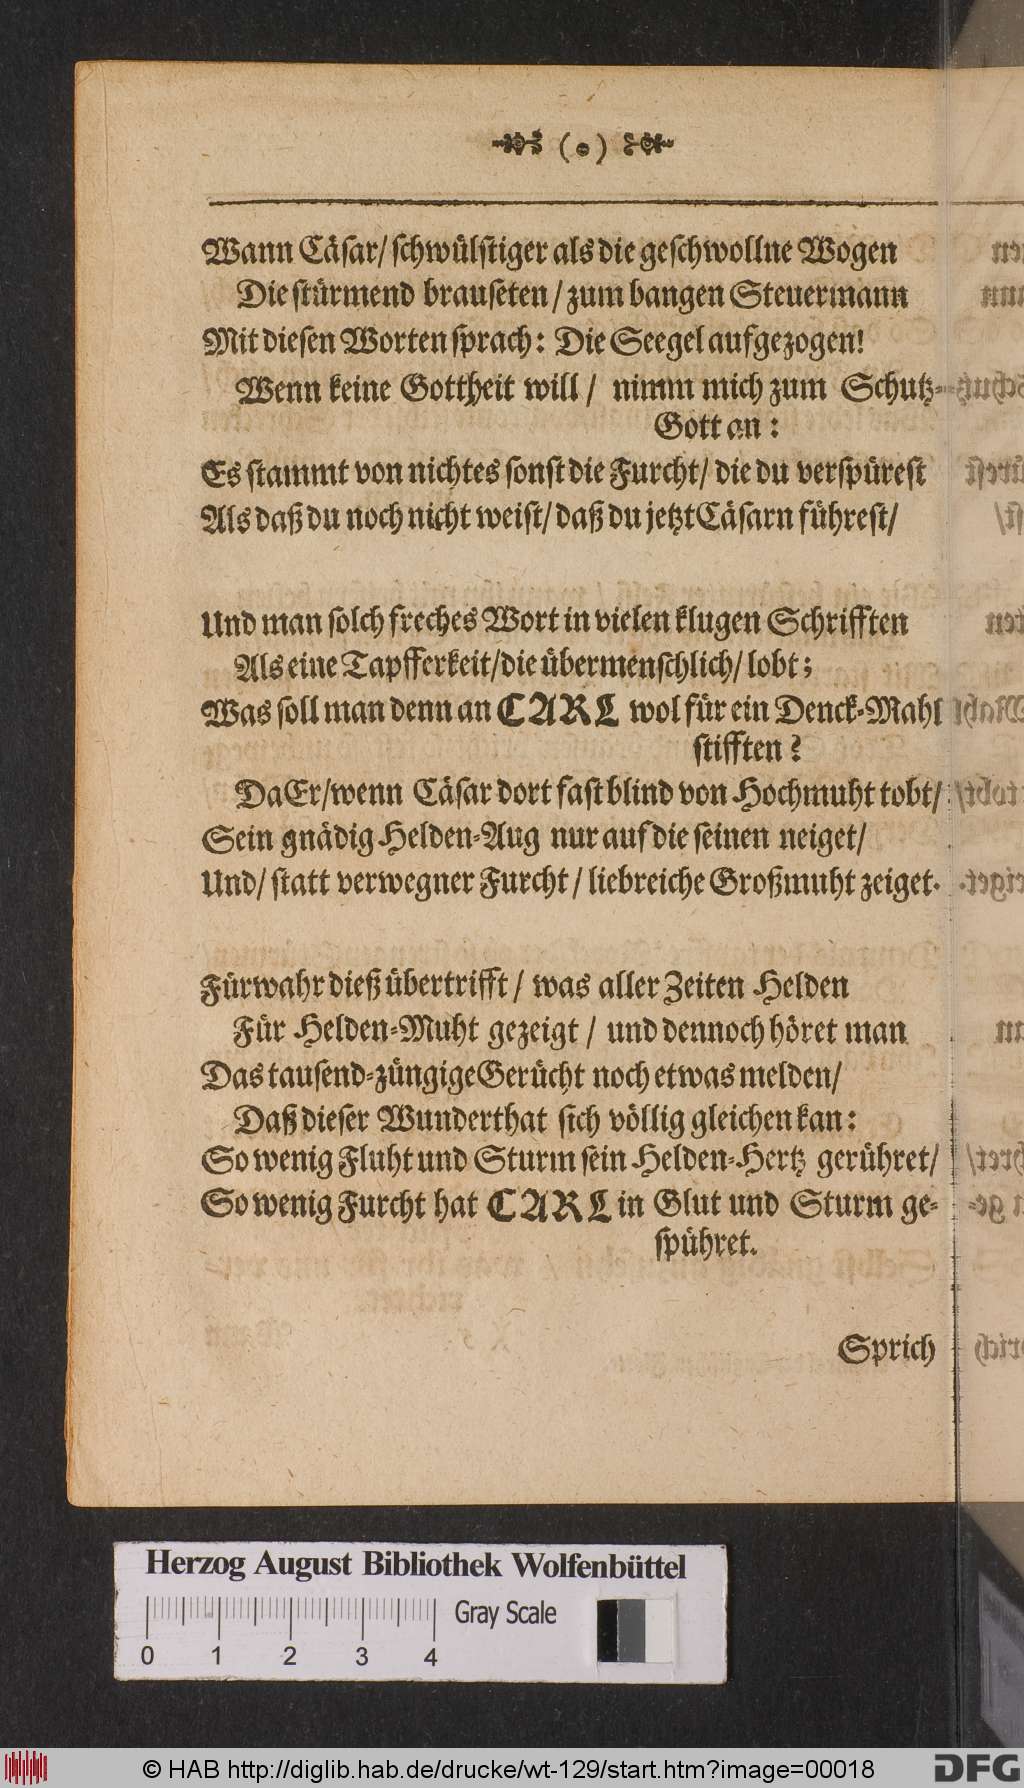 (•)
Wann Cäsar/ schwülstiger als die geschwollne Wogen
Die stürmend brauseten / zum bangen Steuermann
Mit diesen Worten sprach: Die Seegel aufgezogen!
Wenn keine Gottheit will / nimm mich zum Schutz-
Gott an:
Es stammt von nichtes sonst die Furcht/ die du verspürest
Als daß du noch nicht weist/ daß du jetzt Cäsarn führest/
Und man solch freches Wort in vielen klugen Schrifften
Als eine Tapfferkeit/die übermenschlich/ lobt;
Was soll man denn an CARL wol für ein Denck-Mahl
stifften?
Da Er/wenn Cäsar dort fast blind von Hochmuht tobt/
Sein gnädig Helden-Aug nur auf die seinen neiget/
Und/ statt verwegner Furcht / liebreiche Großmuht zeiget.
Fürwahr dieß übertrifft / was aller Zeiten Helden
Für Helden-Muht gezeigt / und dennoch höret man
Das tausend-züngige Gerücht noch etwas melden/
Daß dieser Wunderthat sich völlig gleichen kan:
So wenig Fluht und Sturm sein Helden-Hertz gerühret/
So wenig Furcht hat CARL in Glut und Sturm ge-
spühret.
Sprich
Herzog August Bibliothek Wolfenbüttel
Gray Scale
0 1 2 3 4
© HAB http://diglib.hab.de/drucke/wt-129/start.htm?image=00018
DFG